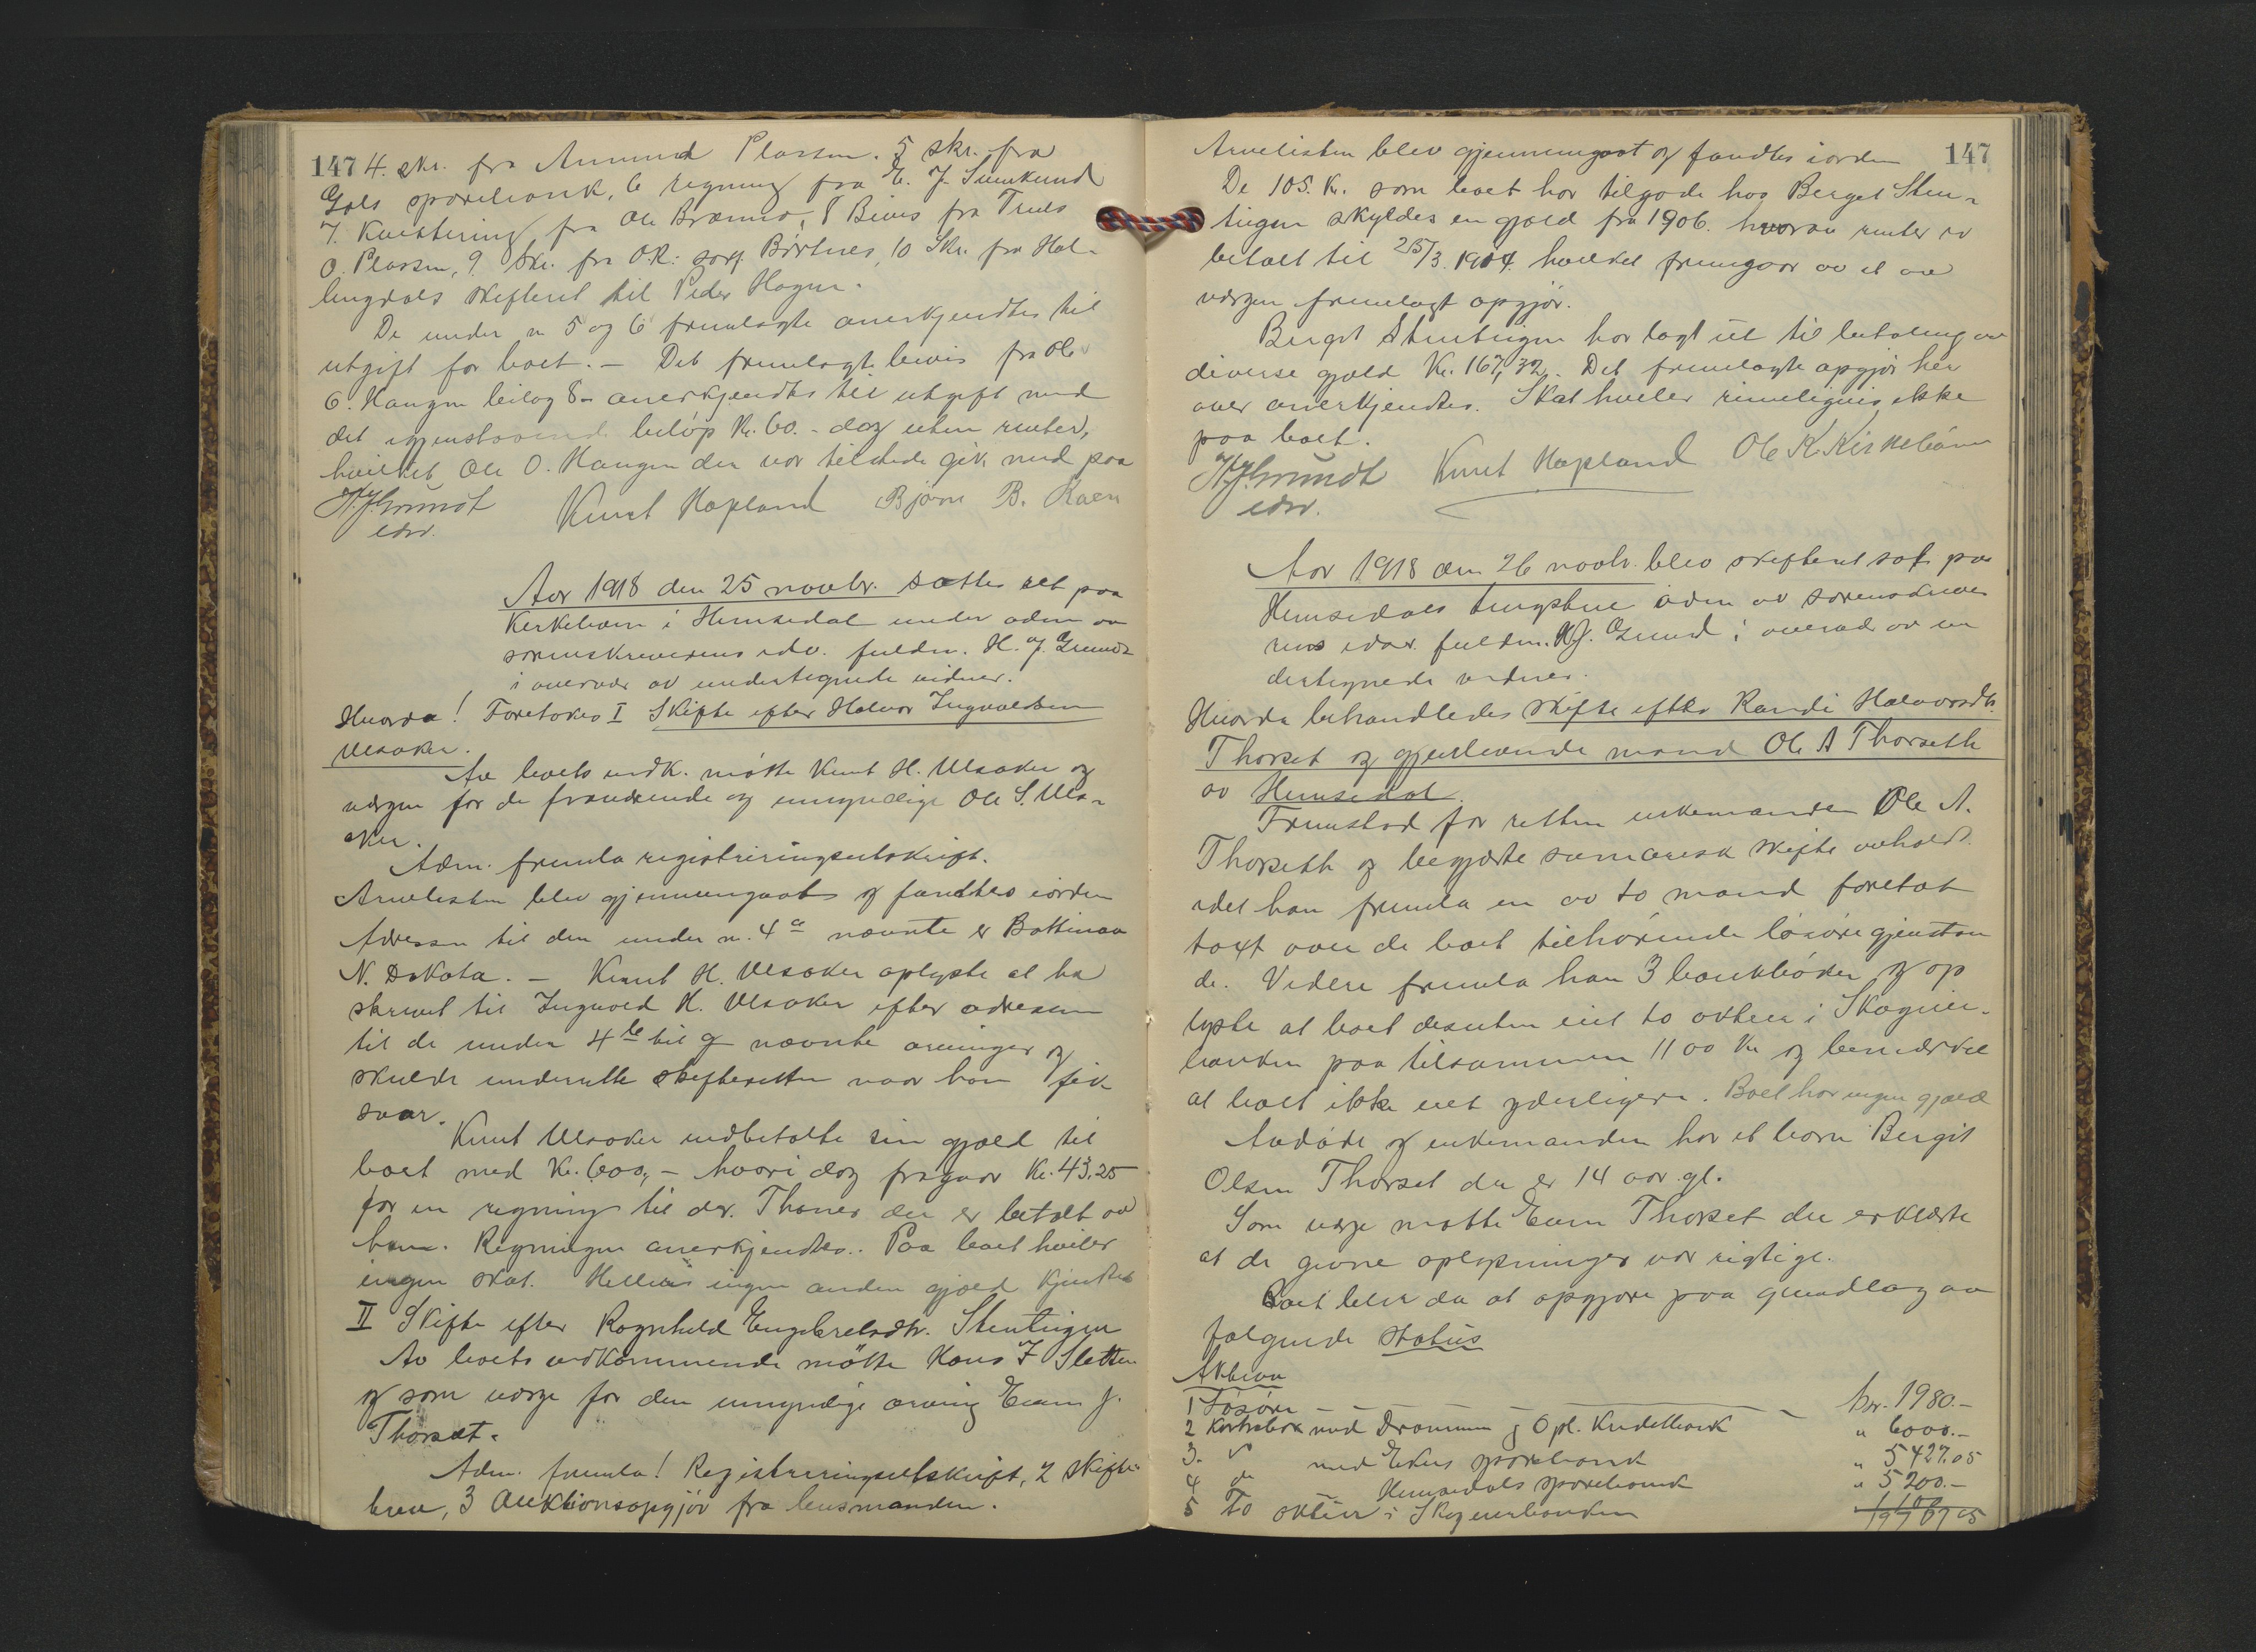 147 4. skr. fra Amund Plassen. 5 skr. fra
Gols sparebank, 6 regning fra E. J.
7. Kvittering fra Ole Brænno, 8 Bevis fra Truls
O. Plassen, 9. Skr. fra O.R: sorf. Børtnes, 10 Skr. fra Hal-
lingdals skifteret til Peder Hagen.
De under n 5 og 6 fremlagte anerkjendtes til
utgift for boet. - Det fremlagte bevis fra Ole
O. Haugen bilag 8 - anerkjendtes til utgift med
det igjenstaaende beløp Kr. 60.- dog uten renter,
hvilket Ole O. Haugen der var tilstede gik med paa
H. J. Grundt Knut Hapland Bjørn B. Kaen
edsv.
Aar 1918 den 25 novbr. sattes ret paa
Kirkebøen i Hemsedal under adm av
sorenskriverens edv. fuldm. H. J. Grundt
i overvær av undertegnede vidner.
Hvorda! Foretokes I Skifte efter Halvor Ingvaldsen
Ulsaker.
Av boets vedk. møtte Knut H. Ulsaker og
vergen for de fraværende og umyndige Ole S. Ulsa-
ker.
Adm. fremla registreringsutskrift.
Arvelisten blev gjennemgaat og fandtes iorden
Adressen til den under n. 4 a nævnte er Bottinau
N. Dakota. - Knut H. Ulsaker oplyste at ha
skrevet til Ingvald H. Ulsaker efter adressen
til de under 4 b til g nævnte arvinger og
skulde underrette skifteretten naar han fik
svar.
Knut Ulsaker indbetalte sin gjæld til
boet med Kr. 600,- hvori dog fragaar Kr. 43.25
for en regning til dr. Thoner der er betalt av
ham. Regningen anerkjendtes. Paa boet hviler
ingen skat. Hellers ingen anden gjæld kjendtes
II Skifte efter Ragnhild Engebretsdtr. Stentrigen
Av boets vedkommende møtte Hans T Sletten
og som verge for den umyndige arving Even J.
Thorset.
Adm. fremla! Registreringsutskrift, 2 skifte-
breve, 3 Auktionsopgjør fra lensmanden.
Arvelisten blev gjennemgaat og fandtes iorden 147
De 105. Kr. som boet har tilgode hos Berget Sten-
trigen skyldes en gjæld fra 1906. hvorav renter er
betalt til 25/3. 1914. hvilket fremgaar av et av
vergen fremlagt opgjør.
Berget Stentrigen har lagt ut til betaling av
diverse gjæld Kr. 167,32. Det fremlagte opgjør her
over anerkjendtes. Skat hviler rimeligvis ikke
paa boet.
H. J. Grundt Knut Hapland Ole K. Kirkebøen
edsv.
Aar 1918 den 26 novbr. blev skifteret sat paa
Hemsedals tingstue adm av sorenskrive
rens edsv. fuldm. H.J. Grundt i overvær av un
dertegnede vidner.
Hvorda behandledes skifte efter Randi Halvorsdtr.
Thorset og gjenlevende mand Ole A Thorseth
av Hemsedal.
Fremstod for retten enkemanden Ole A.
Thorseth og begjærte sumarisk skifte avholdt.
idet han fremla en av to mænd foretat
taxt over de boet tilhørende løsøregjenstan
de. Videre fremla han 3 bankbøker og op
lyste at boet desuten eiet to aktier i Skogeier-
banken paa tilsammen 1100 Kr og bemærket
at boet ikke eiet yderligere. Boet har ingen gjæld
Avdøde og enkemanden har et barn Bergit
Olsen Thorset der er 14 aar gl.
Som verge møtte Even Thorset der erklærte
at de givne oplysninger var rigtige.
Boet blir da at opgjøre paa grundlag av
følgende status
Aktiva
1 Løsøre - - - - Kr. 1980.-
2 Kontrabok med Drammen og Opl. Kreditbank " 6000.-
3. " med Eker sparebank " 5427.05
4 do Hemsedals sparebank " 5200.-
5 To aktier i Skogeierbanken 1100